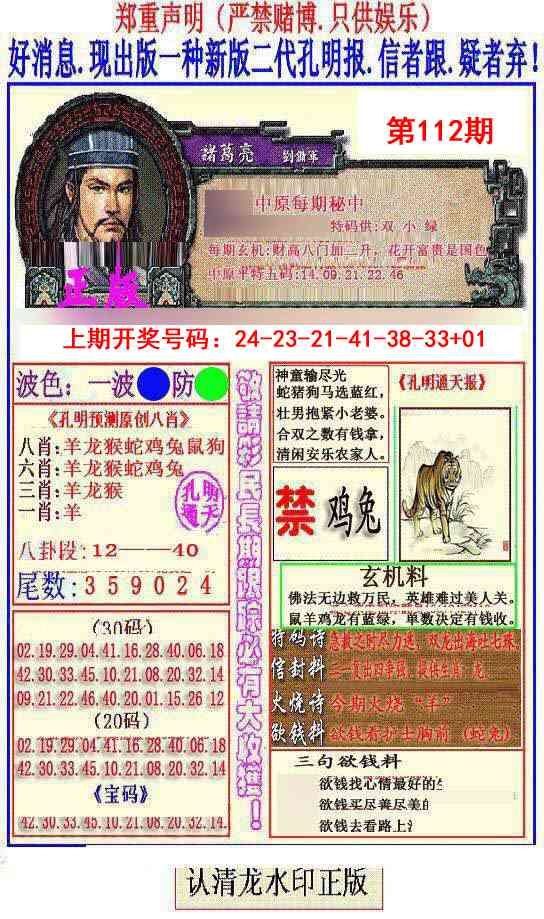 郑重声明（严禁赌博.只供娱乐）
好消息.现出版一种新版二代孔明报.信者跟.疑者弃!
第112期
諸葛亮 劉備軍
中原每期秘中
特码供:双 小 绿
每期玄机:财高八门加二升，花开富贵是国色
中原平特五码:14.09.21.22.46
正版
上期开奖号码：24-23-21-41-38-33+01
波色：一波 防
《孔明预测原创八肖》
八肖:羊龙猴蛇鸡兔鼠狗
六肖:羊龙猴蛇鸡兔
三肖:羊龙猴
一肖:羊
孔明通天
八卦段:12——40
尾数:359024
敬請彩民長期跟踪必有大收獲！
神童输尽光
蛇猪狗马选蓝红，
壮男抱紧小老婆。
合双之数有钱拿，
清闲安乐农家人。
《孔明通天报》
禁 鸡兔
玄机料
佛法无边救万民，英雄难过美人关。
鼠羊鸡龙有蓝绿，单数决定有钱收。
(30码)
02.19.29.04.41.16.28.40.06.18
42.30.33.45.10.21.08.20.32.14
09.21.22.46.40.20.01.15.26.12
(20码)
02.19.29.04.41.16.28.40.06.18
42.30.33.45.10.21.08.20.32.14
《宝码》
42.30.33.45.10.21.08.20.32.14
特码诗 急救之时尽力逃，双龙出海吐七珠
信封料
火烧诗 今期火烧“羊”
欲钱料 欲钱看护士胸前（蛇兔）
三句欲钱料
欲钱找心情最好的
欲钱买尽善尽美
欲钱去看路上
认清龙水印正版